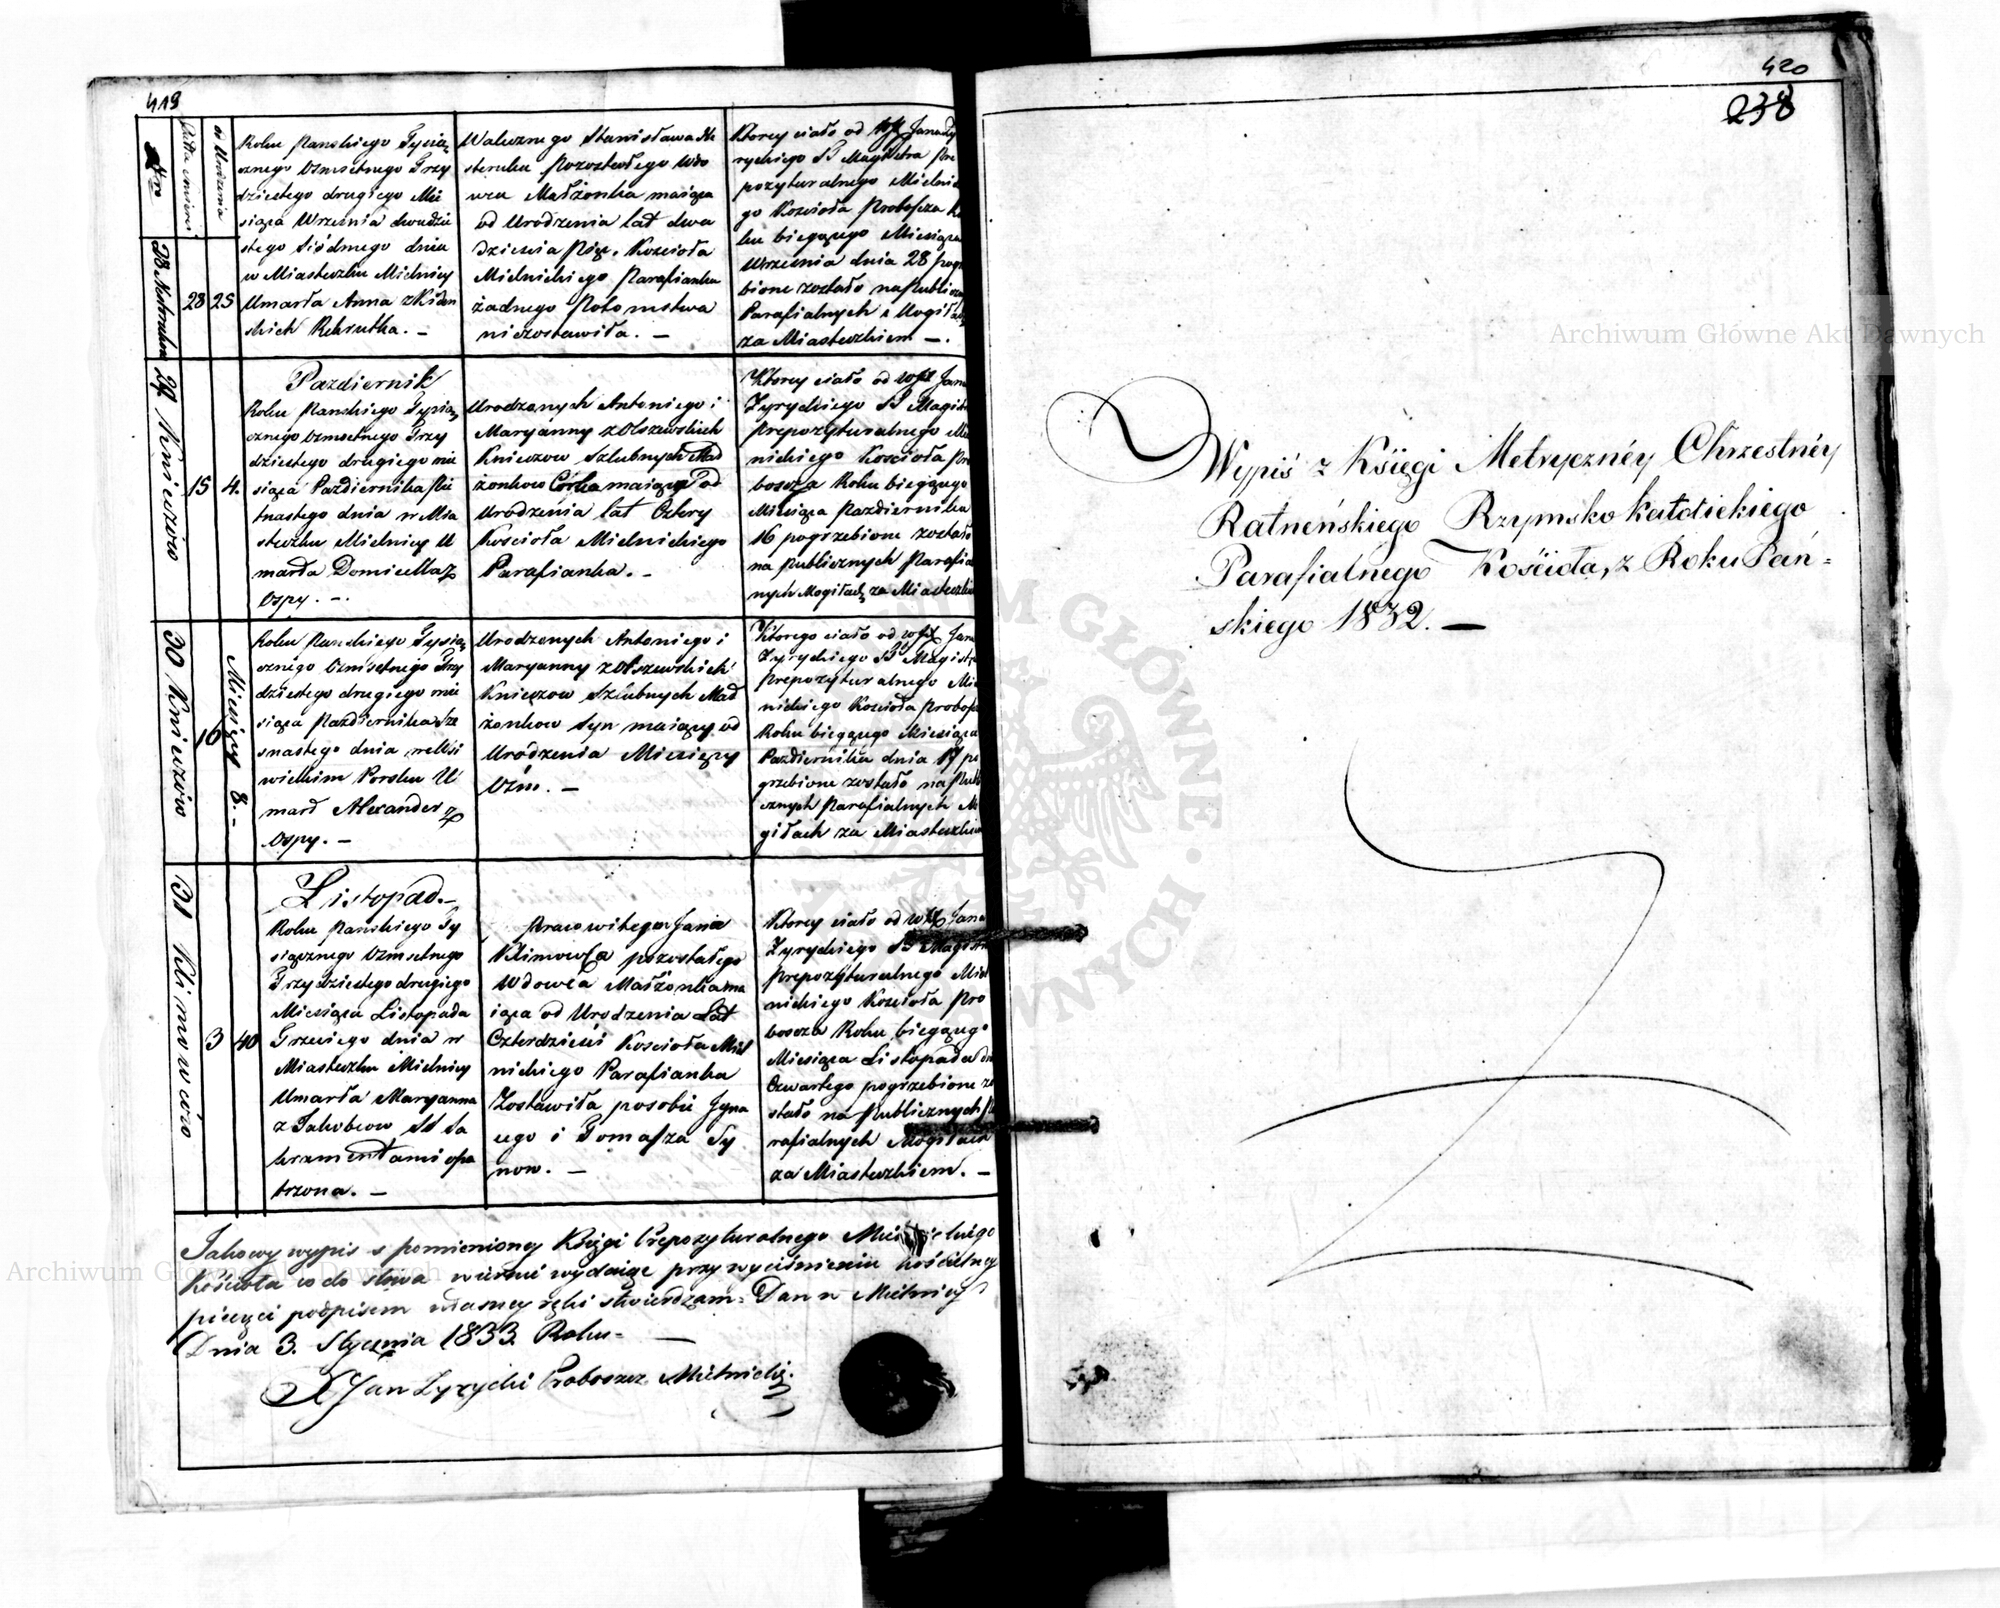 419
Nro
Lata smierci
w Urodzenia
28 Nesteruków
28
25
Roku Panskiego Tysią
cznego Ozmsetnego Trzy
dziestego drugiego Mie
siąca Września dwudzie
stego Siódmego dnia
w Miasteczku Mielnicy
Umarła Anna z Kidan
skich Rekrutka. —
Walecznego Stanisława Ne
steruka Pozostałego Wdo
wca Małżonka maiąca
od Urodzenia lat dwa
dziescia Pięc, Kościoła
Mielnickiego Parafianka
żadnego Potomstwa
niezostawiła. —
Ktorey ciało od WJX Jana Ży
rychiego ST Magistra Pre
pozyturalnego Mielnic
go Kościoła Proboszcza Ro
ku biegącego Miesiąca
Września dnia 28 pog
bione zostało na Publiczn
Parafialnych Mogiłach
za Miasteczkiem —.
29 Knieczów
15
4.
Pazdziernik
Roku Panskiego Tysią
cznego Ozmsetnego Trzy
dziestego drugiego mie
siąca Pazdziernika Pię
tnastego dnia w Mia
steczku Mielnicy U
marła Domicella z
Ospy. —.
Urodzonych Antoniego i
Maryanny z Olszewskich
Knieczow Szlubnych Mał
żonkow Córka maiąca od
Urodzenia lat Cztery
Kościoła Mielnickiego
Parafianka. —
Ktorey ciało od WJX Jana
Zyryckiego ST Magist
Prepozyturalnego Mie
nickiego Kościoła Pro
boszcza Roku biegącego
Miesiąca Pazdziernika
16 pogrzebione zostało
na Publicznych Parafia
nych Mogiłach za Miasteczkie
30 Knieczów
16
Miesięcy 8. —
Roku Panskiego Tysią
cznego Ozmsetnego Trzy
dziestego drugiego mie
siąca Pazdziernika Sze
snastego dnia we Wsi
wielkim Porsku U
marł Alexander z
Ospy. —
Urodzonych Antoniego i
Maryanny z Olszewskich
Knieczow Szlubnych Mał
żonkow Syn maiący od
Urodzenia Miesięcy
Ozm. —
Ktorego ciało od WJX Jana
Zyryckiego ST Magist
Prepozyturalnego Mie
nickiego Kościoła Probos
Roku biegącego Miesiąca
Pazdziernika dnia 17 po
grzebione zostało na Publ
cznych Parafialnych Mo
giłach za Miasteczkie
31 Klimowców
3
40
Listopad. —
Roku Panskiego Ty
siącznego Ozmsetnego
Trzydziestego drugiego
Miesiąca Listopada
Trzeciego dnia w
Miasteczku Mielnicy
Umarła Maryanna
z Jakobcow SS Sa
kramentami opa
trzona. —
Pracowitego Jana
Klimowca pozostałego
Wdowca Małżonka ma
iąca od Urodzenia Lat
Czterdzieści Kościoła Miel
nickiego Parafianka
Zostawiła po sobie Igna
cego i Tomasza Sy
now. —
Ktorey ciało od WJX Jana
Zyryckiego ST Magistr
Prepozyturalnego Miel
nickiego Kościoła Pro
boszcza Roku biegącego
Miesiąca Listopada dn
Czwartego pogrzebione zo
stało na Publicznych Pa
rafialnych Mogiłach
za Miasteczkiem. —
Takowy wypis s pomienioney Księgi Prepozyturalnego Mielnickiego
Kościoła co do słowa wiernie wydaiąc przy wyciśnieniu kościelney
pieczęci podpisem własney ręki stwierdzam. Dan w Mielnicy
Dnia 3. Stycznia 1833. Roku. —
X Jan Zyrycki Proboszcz Mielnicki.
420
238
Wypis z Księgi Metrycznéy Chrzestnéy
Ratneńskiego Rzymsko katolickiego
Parafialnego Kościoła, z Roku Pań-
skiego 1832. —
Archiwum Główne Akt Dawnych
Archiwum Główne Akt Dawnych
Archiwum Główne Akt Dawnych
ARCHIWUM GŁÓWNE AKT DAWNYCH